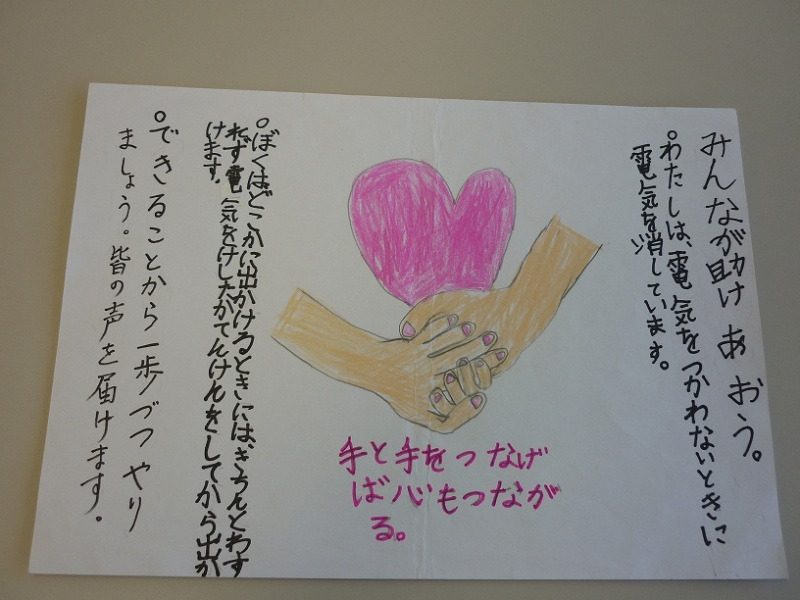 みんなが助けあおう。
。わたしは、電気をつかわないときに
電気を消しています。
手と手をつなげ
ば心もつながが
る。
。ぼくはどこかに出かけるときには、きちんとわす
れず電気をけしたかてんけんをしてから出か
けます。
。できることから一歩づつやり
ましょう。皆の声を届けます。